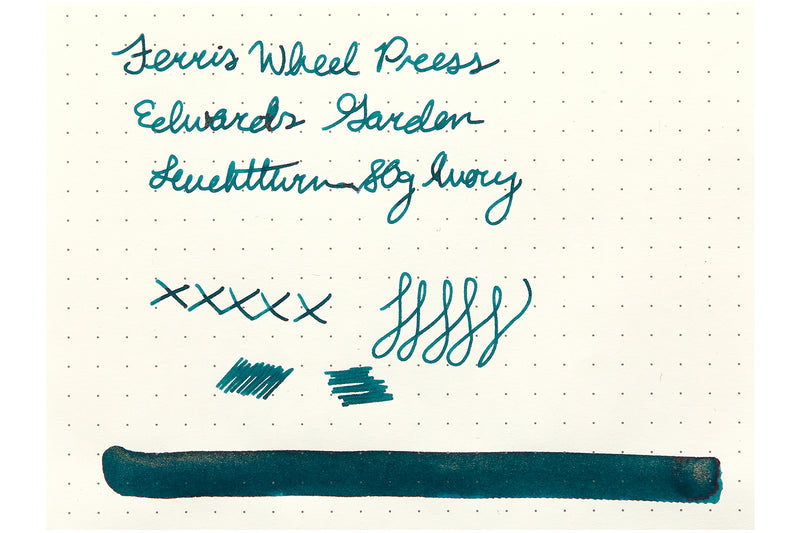 Ferris Wheel Press
Edwards Garden
Leuchtturm 80g Ivory
xxxxx